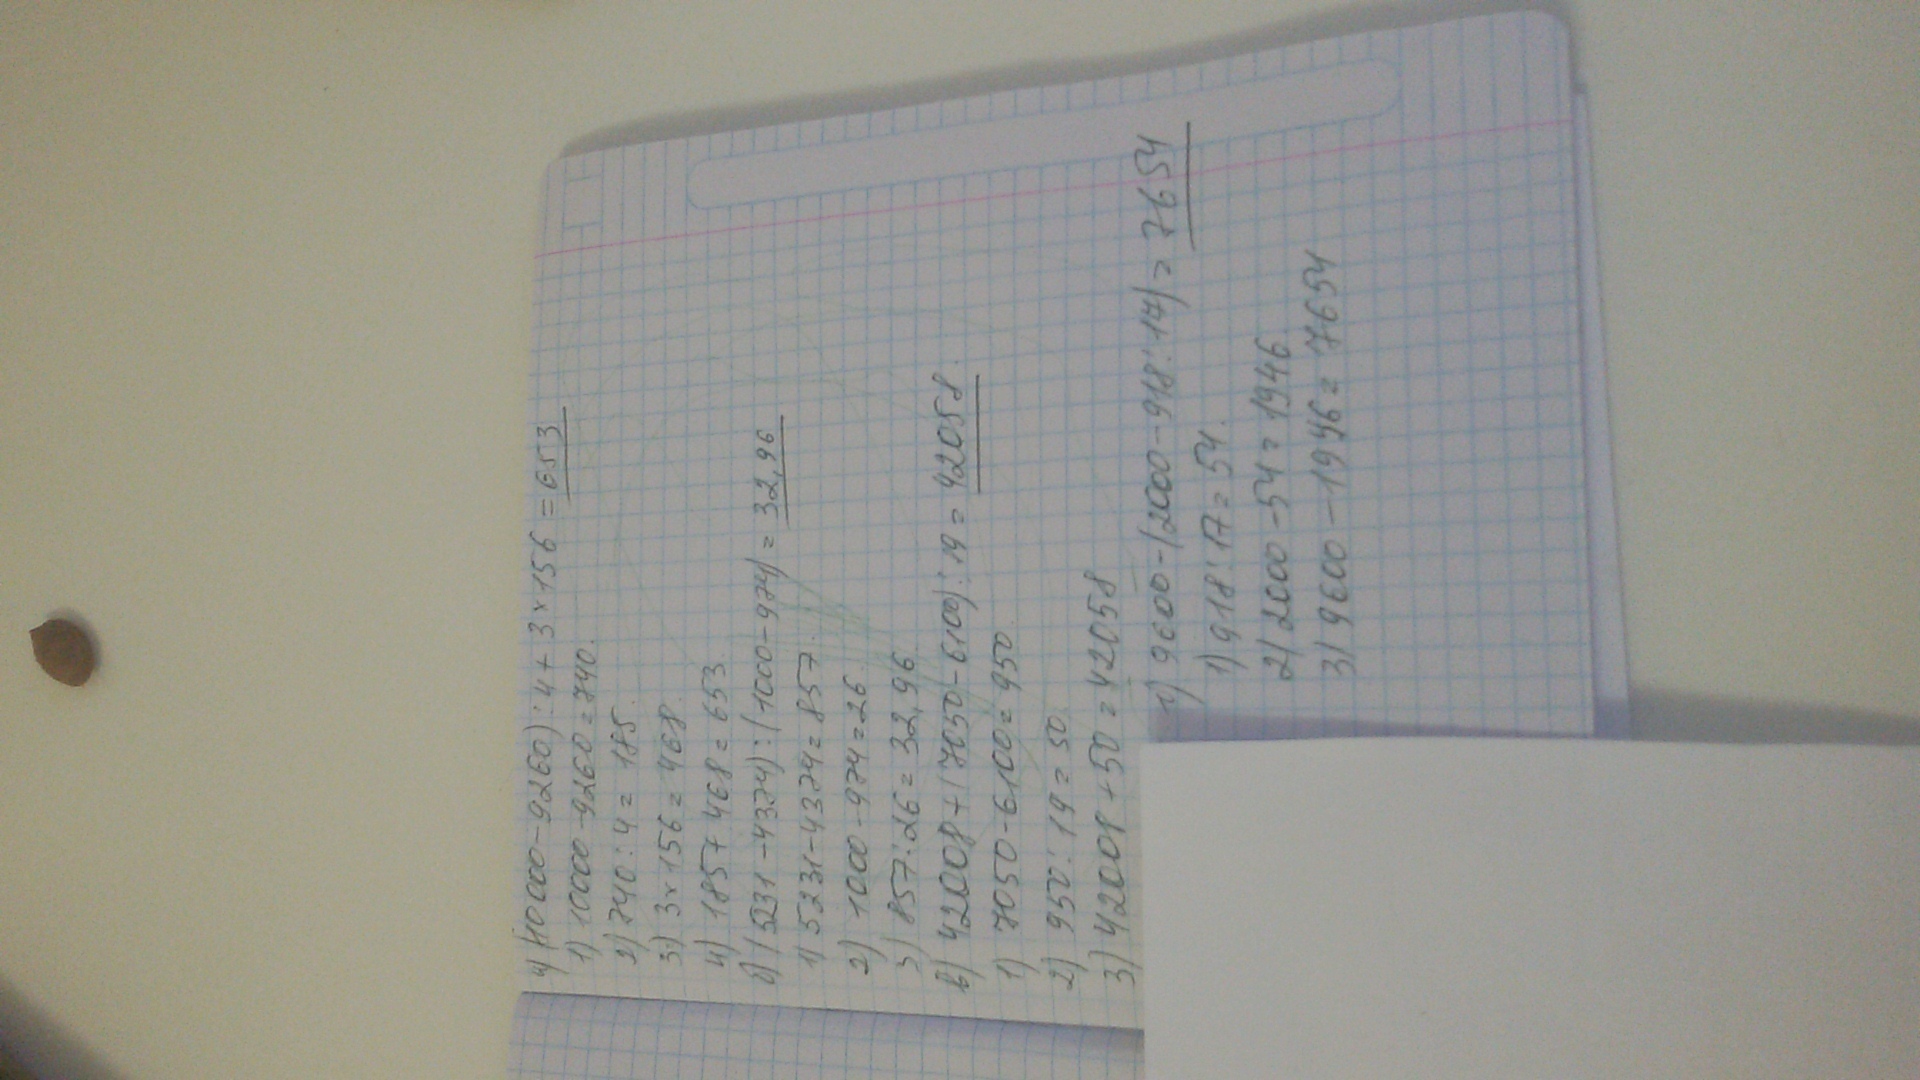 а) (10000-9260):4+3×156=653
1) 10000-9260=740.
2) 740:4=185.
3) 3×156=468.
4) 185+468=653.
б) (5231-4374):(1000-974)=32,96
1) 5231-4374=857.
2) 1000-974=26.
3) 857:26=32,96.
в) 42008+(7050-6100):19=42058.
1) 7050-6100=950.
2) 950:19=50.
3) 42008+50=42058
г) 9600-(2000-918:17)=7654
1) 918:17=54.
2) 2000-54=1946.
3) 9600-1946=7654